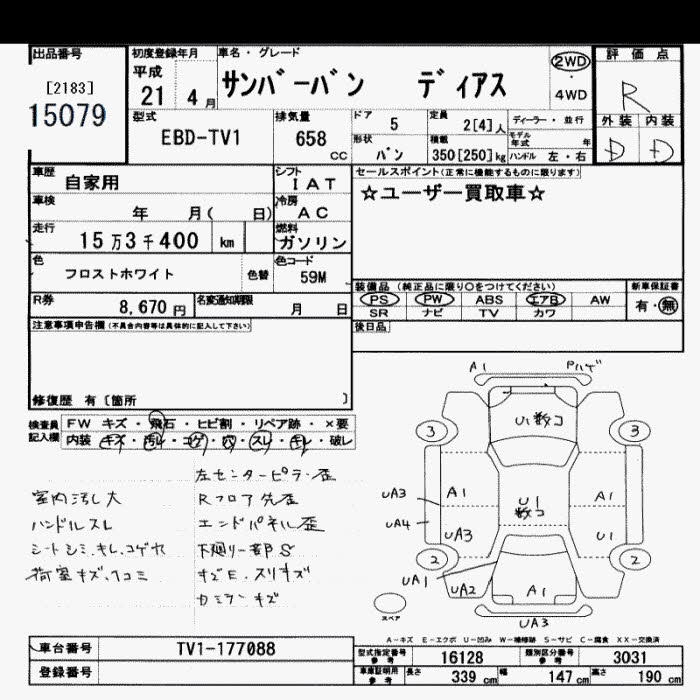 出品番号
[2183]
15079
初度登録年月
平成
21 4 月
車名・グレード
サンバーバン ディアス
2WD
・
4WD
評価点
R
外装 内装
D D
型式
EBD-TV1
排気量
658
CC
ドア
5
形状
バン
定員
2[4]人
積載
350[250]kg
ディーラー・並行
モデル年式 年
ハンドル 左・右
車歴
自家用
シフト
IAT
車検
年 月( 日)
冷房
AC
走行
15万3千400 km
燃料
ガソリン
色
フロストホワイト
色替
色コード
59M
R券
8,670 円
名変通知期限
月 日
セールスポイント(正常に機能するものに限ります)
☆ユーザー買取車☆
装備品 (純正品に限り○をつけてください)
PS PW ABS エアB AW
SR ナビ TV カワ
新車保証書
有・無
後日品
注意事項申告欄(不具合内容等は具体的に記入して下さい)
修復歴 有〔箇所 〕
検査員記入欄
FW キズ・飛石・ヒビ割・リペア跡・×要
内装 キズ・汚レ・コゲ・穴・スレ・キレ・破レ
室内汚レ大
ハンドルスレ
シートシミ,キレ,コゲ穴
荷室キズ,ヘコミ
左センターピラー歪
Rフロア先歪
エンドパネル歪
下廻り一部S
キズE.スリキズ
A1 Pハゲ
3 U1数コ 3
A1 U1数コ A1
UA3
UA4
UA3 U1
2 2
UA1
UA2 A1
UA3
スペア
A-キズ E-エクボ U-凹み W-補修跡 S-サビ C-腐食 XX-交換済
車台番号 TV1-177088
登録番号
型式指定番号参考 16128 類別区分番号参考 3031
車庫証明用参考 長さ 339 cm 幅 147 cm 高さ 190 cm